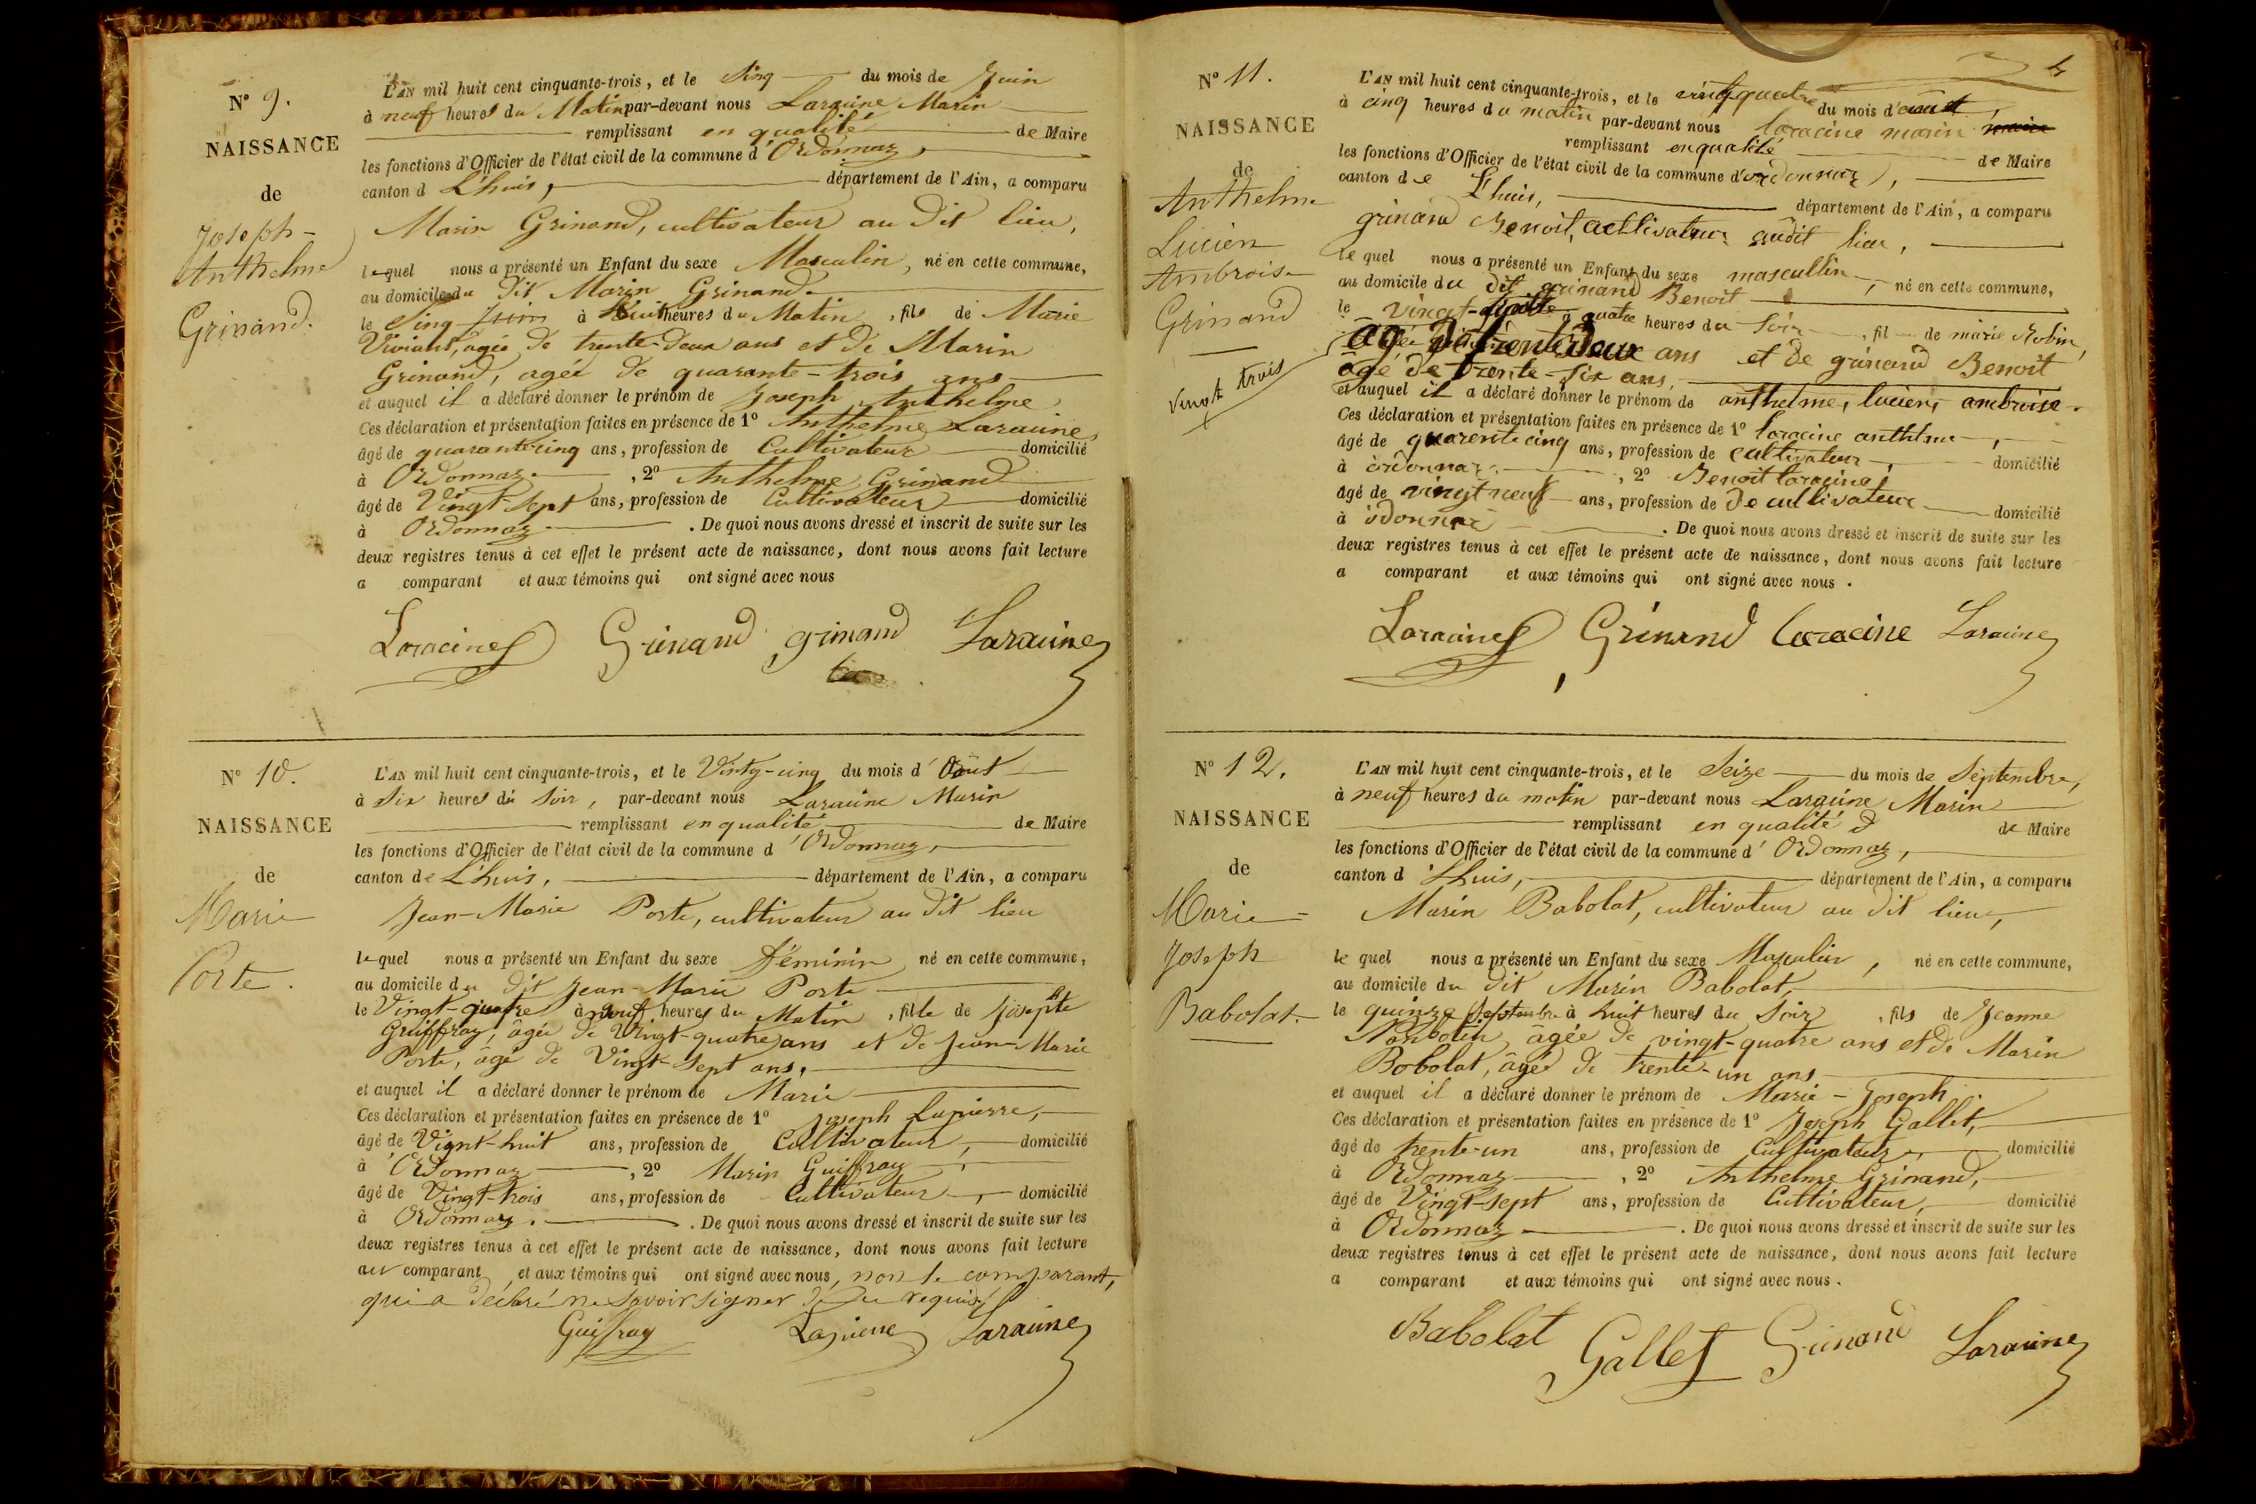 N° 9.
NAISSANCE
de
Joseph-
Anthelme
Grinand.
L'AN mil huit cent cinquante-trois, et le Sinq du mois de Juin
à neuf heures du Matin par-devant nous Laracine Marin
remplissant en qualité de Maire
les fonctions d'Officier de l'état civil de la commune d'Ordonnaz,
canton d L'huis, département de l'Ain, a comparu
Marin Grinand, cultivateur au dit lieu,
lequel nous a présenté un Enfant du sexe Masculin, né en cette commune,
au domicile du dit Marin Grinand.
le Sinq Juin à huit heures du Matin, fils de Marie
Viviant, agée de trente-deux ans et de Marin
Grinand, agée de quarante-trois ans
et auquel il a déclaré donner le prénom de Joseph Anthelme
Ces déclaration et présentation faites en présence de 1° Anthelme Laracine,
âgé de quarantecinq ans, profession de Cultivateur domicilié
à Ordonnaz. , 2° Anthelme Grinand
âgé de Vingt-sept ans, profession de Cultivateur domicilié
à Ordonnaz . De quoi nous avons dressé et inscrit de suite sur les
deux registres tenus à cet effet le présent acte de naissance, dont nous avons fait lecture
a comparant et aux témoins qui ont signé avec nous
Laracine Grinand grinand Laracine
N° 10.
NAISSANCE
de
Marie
Porte.
L'AN mil huit cent cinquante-trois, et le Vintg-cinq du mois d'Oaut
à Six heures du Soir, par-devant nous Laracine Marin
remplissant en qualité de Maire
les fonctions d'Officier de l'état civil de la commune d'Ordonnaz,
canton de L'huis, département de l'Ain, a comparu
Jean-Marie Porte, cultivateur au dit lieu
lequel nous a présenté un Enfant du sexe Féminin né en cette commune,
au domicile du dit Jean-Marie Porte
le Vingt-quatre à neuf heures du Matin, fille de Josephte
Guiffray, âgée de Vingt-quatre ans et de Jean-Marie
Porte, âgé de Vingt-Sept ans,
et auquel il a déclaré donner le prénom de Marie
Ces déclaration et présentation faites en présence de 1° Joseph Lapierre,
âgé de Vignt-huit ans, profession de Cultivateur, domicilié
à Ordonnaz , 2° Marin Guiffray,
âgé de Vingt-trois ans, profession de Cultivateur, domicilié
à Ordonnaz. . De quoi nous avons dressé et inscrit de suite sur les
deux registres tenus à cet effet le présent acte de naissance, dont nous avons fait lecture
au comparant et aux témoins qui ont signé avec nous, non le comparant,
qui a déclaré ne savoir signer de ce requis.
Guiffray Lapierre Laracine
4
N° 11.
NAISSANCE
de
Anthelme
Lucien
Ambroise
Grinand
vingt trois
L'AN mil huit cent cinquante-trois, et le vintg-quatre du mois d'août,
à cinq heures du matin par-devant nous laracine marin maire
remplissant en qualité de Maire
les fonctions d'Officier de l'état civil de la commune d'ordonnaz,
canton de L'huis, département de l'Ain, a comparu
grinand Benoit, cultivateur audit lieu,
le quel nous a présenté un Enfant du sexe mascullin, né en cette commune,
au domicile du dit grinand Benoit
le vingt- à quatre heures du Soir, fil de marie Robin,
agé de trente deux ans et de grinand Benoit
agé de trente-six ans,
et auquel il a déclaré donner le prénom de anthelme, lucien, ambroise.
Ces déclaration et présentation faites en présence de 1° laracine anthelme,
âgé de quarente cinq ans, profession de cultivateur, domicilié
à ordonnaz. , 2° Benoit laracine,
âgé de vingt neuf ans, profession de De cultivateur domicilié
à odonnaz . De quoi nous avons dressé et inscrit de suite sur les
deux registres tenus à cet effet le présent acte de naissance, dont nous avons fait lecture
a comparant et aux témoins qui ont signé avec nous.
Laracine Grinand laracine Laracine
N° 12.
NAISSANCE
de
Marie-
Joseph
Babolat.
L'AN mil huit cent cinquante-trois, et le Seize du mois de Septembre,
à neuf heures du matin par-devant nous Laracine Marin
remplissant en qualité d de Maire
les fonctions d'Officier de l'état civil de la commune d'Ordonnaz,
canton d L'huis, département de l'Ain, a comparu
Marin Babolat, cultivateur au dit lieu,
le quel nous a présenté un Enfant du sexe Masculin, né en cette commune,
au domicile du dit Marin Babolat,
le quinze Septembre à huit heures du Soir, fils de Jeanne
âgée de vingt-quatre ans et de Marin
Bobolat, âgé de trente-un ans
et auquel il a déclaré donner le prénom de Marie-Joseph.
Ces déclaration et présentation faites en présence de 1° Joseph Gallet,
âgé de trente-un ans, profession de Cultivateur, domicilié
à Ordonnaz , 2° Anthelme Grinand,
âgé de Vingt-sept ans, profession de Cultivateur, domicilié
à Ordonnaz . De quoi nous avons dressé et inscrit de suite sur les
deux registres tenus à cet effet le présent acte de naissance, dont nous avons fait lecture
a comparant et aux témoins qui ont signé avec nous.
Babolat Gallet Grinand Laracine